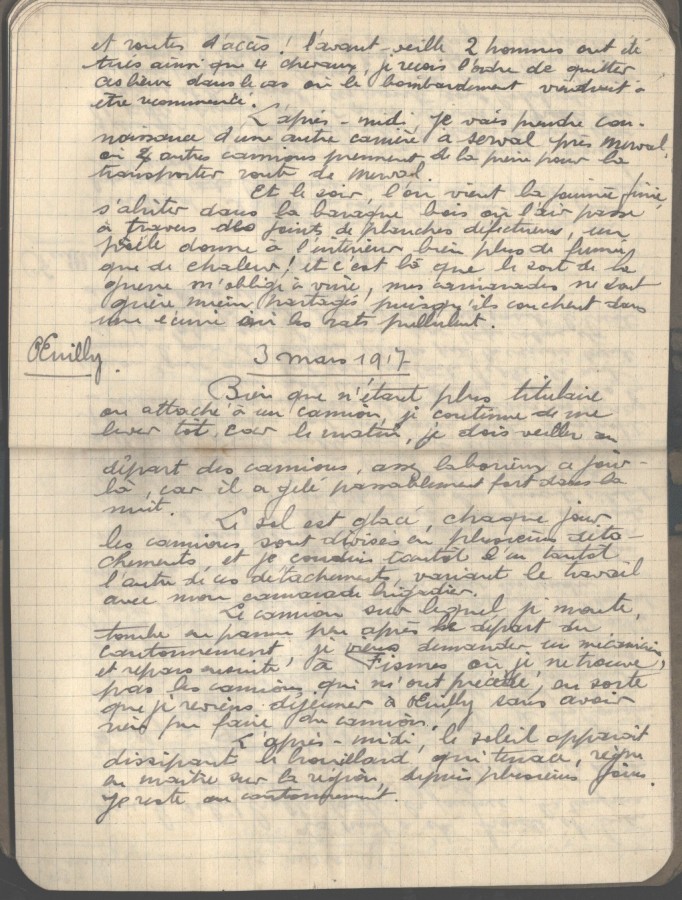 et routes d'accès ! l'avant-veille 2 hommes ont été
tués ainsi que 4 chevaux, je reçois l'ordre de quitter
ces lieux dans le cas où le bombardement viendrait à
être recommencé.
L'après-midi je vais prendre con-
naissance d'une autre carrière à Serval près Merval,
où 2 autres camions prennent de la pierre pour la
transporter route de Merval.
Et le soir, l'on vient la journée finie,
s'abriter dans la baraque bois où l'air passe
à travers des joints de planches défectueux, un
poêle donne à l'intérieur bien plus de fumée
que de chaleur ! et c'est là que le sort de la
guerre m'oblige à vivre, mes camarades ne sont
guère mieux partagés puisqu'ils couchent dans
une écurie où les rats pullulent.
Œuilly.
3 mars 1917
Bien que n'étant plus titulaire
ou attaché à un camion, je continue de me
lever tôt, car le matin, je dois veiller au
départ des camions, assez laborieux ce jour-
là, car il a gelé passablement fort dans la
nuit.
Le sol est glacé, chaque jour
les camions sont divisés en plusieurs déta-
chements, et je conduis tantôt l'un tantôt
l'autre de ces détachements, variant le travail
avec mon camarade brigadier.
Le camion sur lequel je monte,
tombe en panne peu après le départ du
cantonnement, je viens demander un mécanicien,
et repars ensuite à Fismes où je ne trouve
pas les camions qui m'ont précédé, en sorte
que je reviens déjeuner à Œuilly sans avoir
rien pu faire du camion.
L'après-midi, le soleil apparaît
dissipant le brouillard qui tenace, règne
en maître sur la région, depuis plusieurs jours.
Je reste au cantonnement.